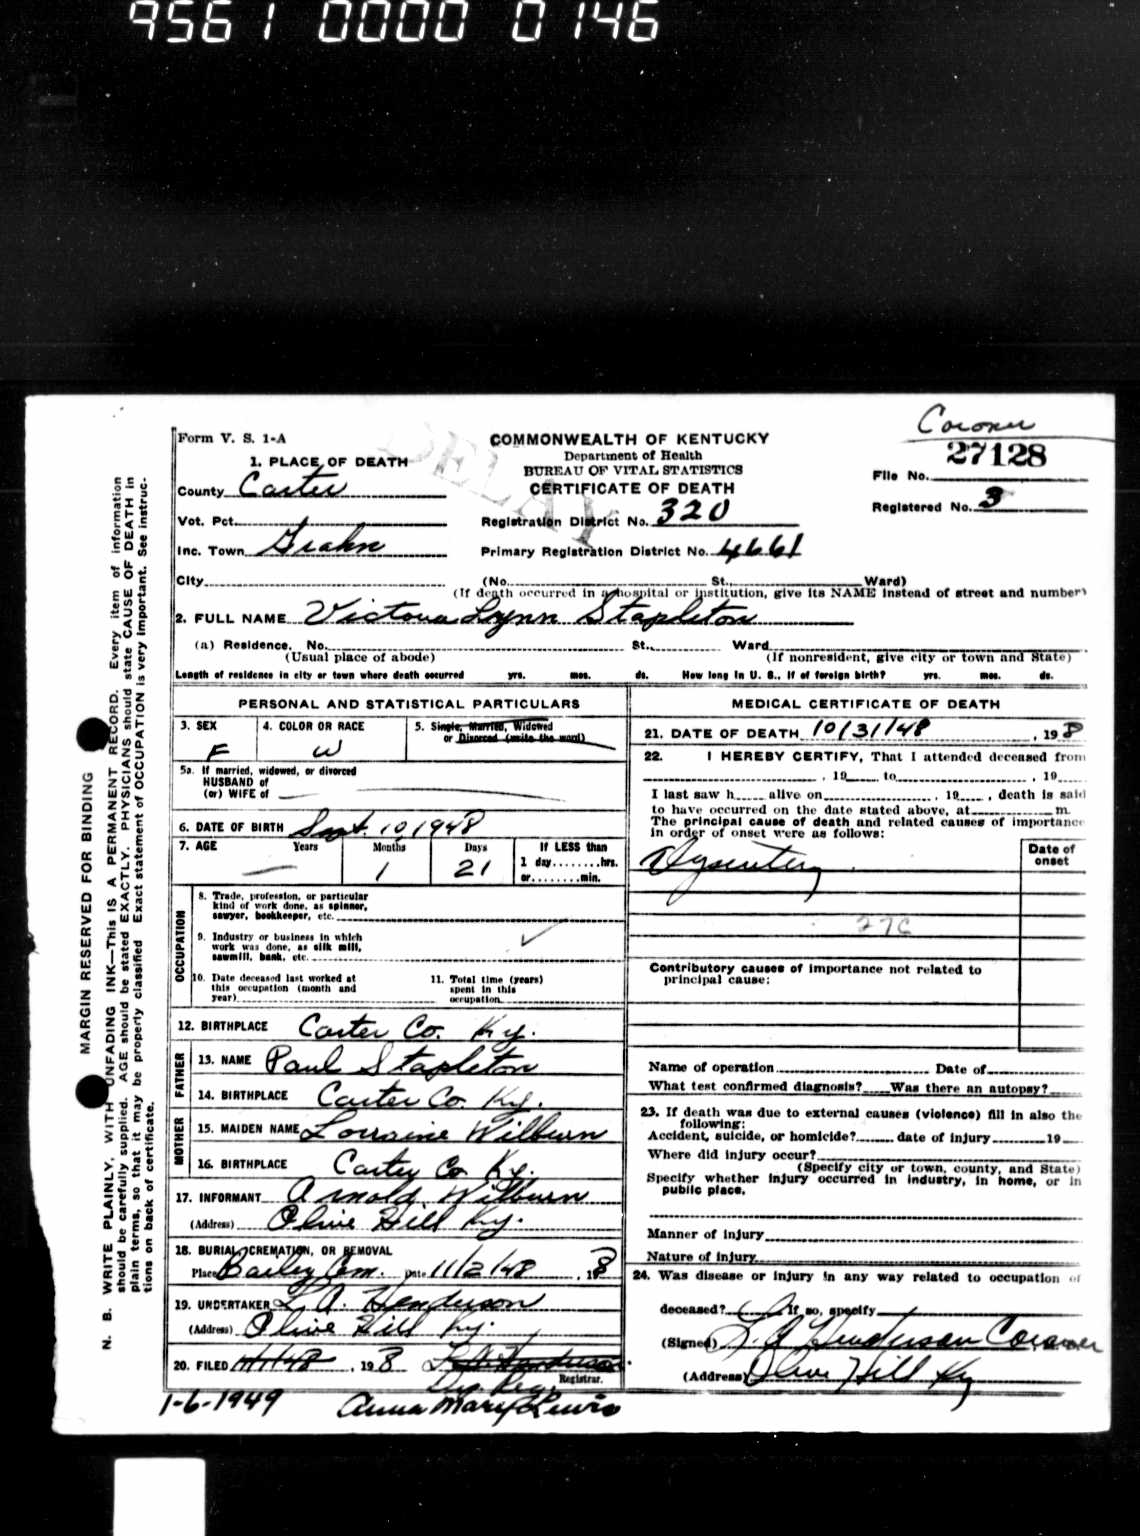 9561 0000 0146
Coroner
Form V. S. 1-A
COMMONWEALTH OF KENTUCKY
Department of Health
BUREAU OF VITAL STATISTICS
CERTIFICATE OF DEATH
DELAY
File No. 27128
Registered No. 3
1. PLACE OF DEATH
County Carter
Vot. Pct.
Registration District No. 320
Inc. Town Grahn
Primary Registration District No. 4661
City (No. St., Ward)
(If death occurred in a hospital or institution, give its NAME instead of street and number)
2. FULL NAME Victoria Lynn Stapleton
(a) Residence. No. St., Ward
(Usual place of abode) (If nonresident, give city or town and State)
Length of residence in city or town where death occurred yrs. mos. ds. How long in U. S., if of foreign birth? yrs. mos. ds.
PERSONAL AND STATISTICAL PARTICULARS
3. SEX F
4. COLOR OR RACE W
5. Single, Married, Widowed
or Divorced (write the word)
5a. If married, widowed, or divorced
HUSBAND of
(or) WIFE of
6. DATE OF BIRTH Sept. 10, 1948
7. AGE Years Months Days If LESS than
1 21 1 day........hrs.
or........min.
OCCUPATION
8. Trade, profession, or particular
kind of work done, as spinner,
sawyer, bookkeeper, etc.
9. Industry or business in which
work was done, as silk mill,
sawmill, bank, etc.
10. Date deceased last worked at
this occupation (month and
year)
11. Total time (years)
spent in this
occupation
12. BIRTHPLACE Carter Co. Ky.
FATHER
13. NAME Paul Stapleton
14. BIRTHPLACE Carter Co. Ky.
MOTHER
15. MAIDEN NAME Lorraine Wilburn
16. BIRTHPLACE Carter Co Ky.
17. INFORMANT Arnold Wilburn
(Address) Olive Hill Ky.
18. BURIAL, CREMATION, OR REMOVAL
Place Bailey Cem. Date 11/2/48, 198
19. UNDERTAKER L. A. Henderson
(Address) Olive Hill Ky.
20. FILED 11/1/48, 198 L. A. Henderson
Registrar.
Dep. Reg.
1-6-1949 Anna Mary Lewis
MEDICAL CERTIFICATE OF DEATH
21. DATE OF DEATH 10/31/48, 198
22. I HEREBY CERTIFY, That I attended deceased from
, 19 to , 19
I last saw h alive on , 19 , death is said
to have occurred on the date stated above, at m.
The principal cause of death and related causes of importance
in order of onset were as follows:
Date of
onset
Dysentery
27c
Contributory causes of importance not related to
principal cause:
Name of operation Date of
What test confirmed diagnosis? Was there an autopsy?
23. If death was due to external causes (violence) fill in also the
following:
Accident, suicide, or homicide? date of injury 19
Where did injury occur?
(Specify city or town, county, and State)
Specify whether injury occurred in industry, in home, or in
public place.
Manner of injury
Nature of injury
24. Was disease or injury in any way related to occupation of
deceased? If so, specify
(Signed) L A Henderson Coroner
(Address) Olive Hill Ky
MARGIN RESERVED FOR BINDING
N. B. WRITE PLAINLY, WITH UNFADING INK—This is A PERMANENT RECORD. Every item of information
should be carefully supplied. AGE should be stated EXACTLY. PHYSICIANS should state CAUSE OF DEATH in
plain terms, so that it may be properly classified. Exact statement of OCCUPATION is very important. See instruc-
tions on back of certificate.